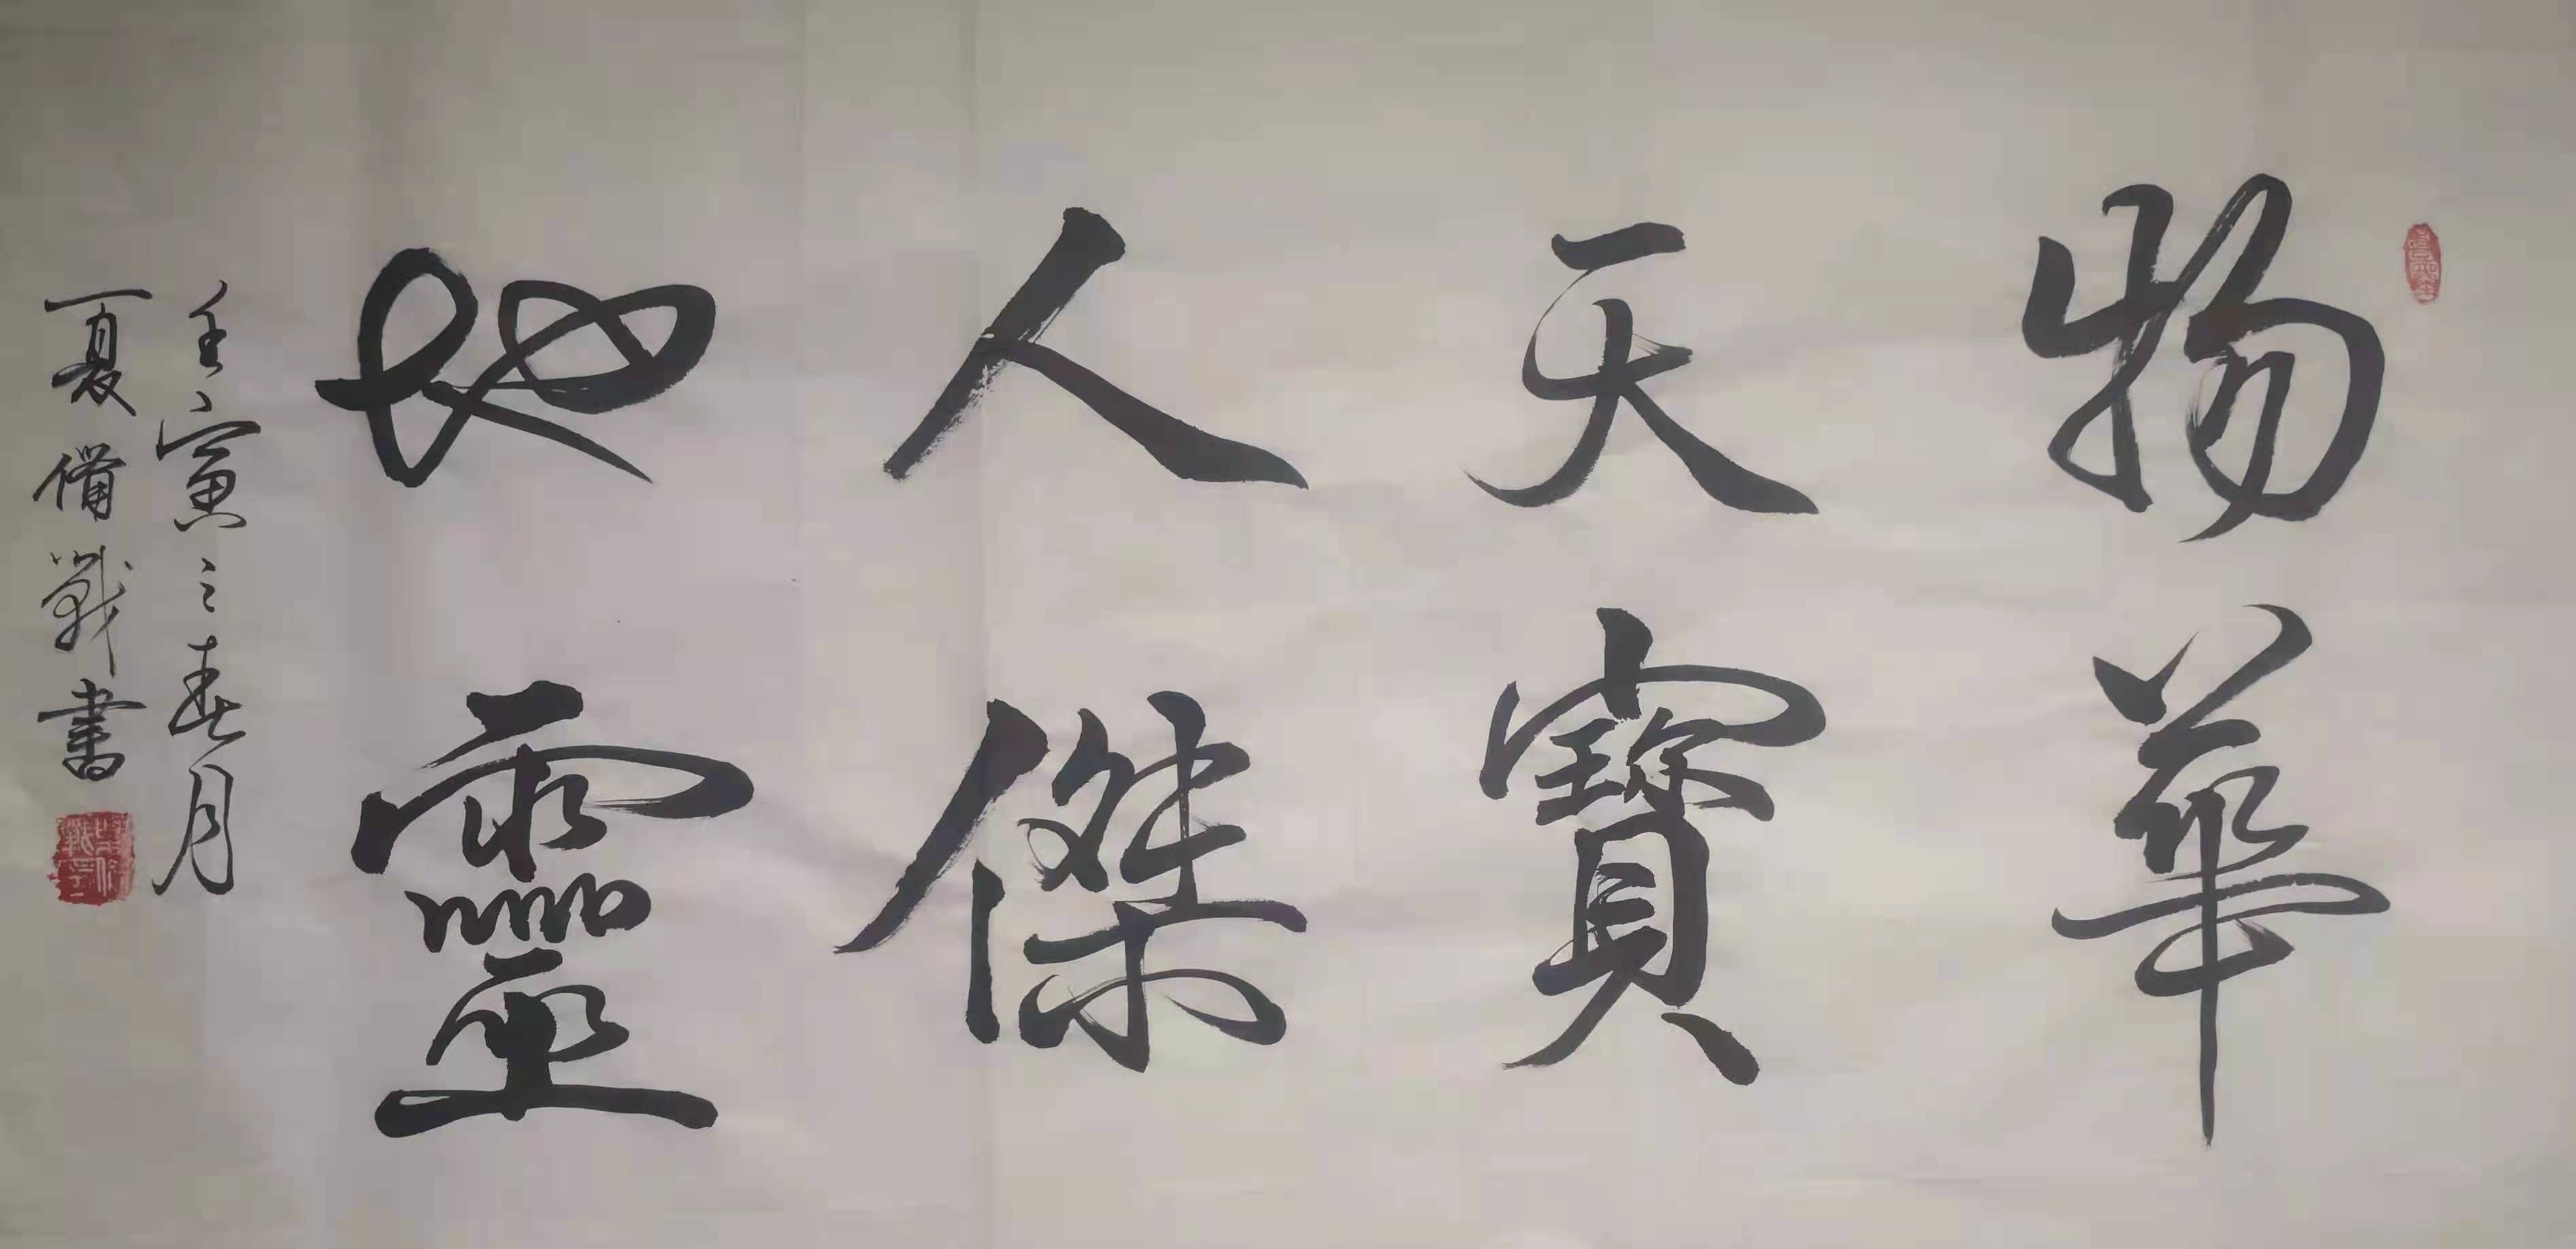 物華
天寶
人傑
地靈
壬寅之春月
夏備戰書